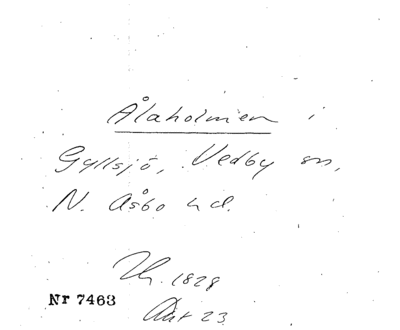 Ålaholmen i
Gyllsjö, Vedby sn,
N. Åsbo hd.
1828
Nr 7463
Akt 23